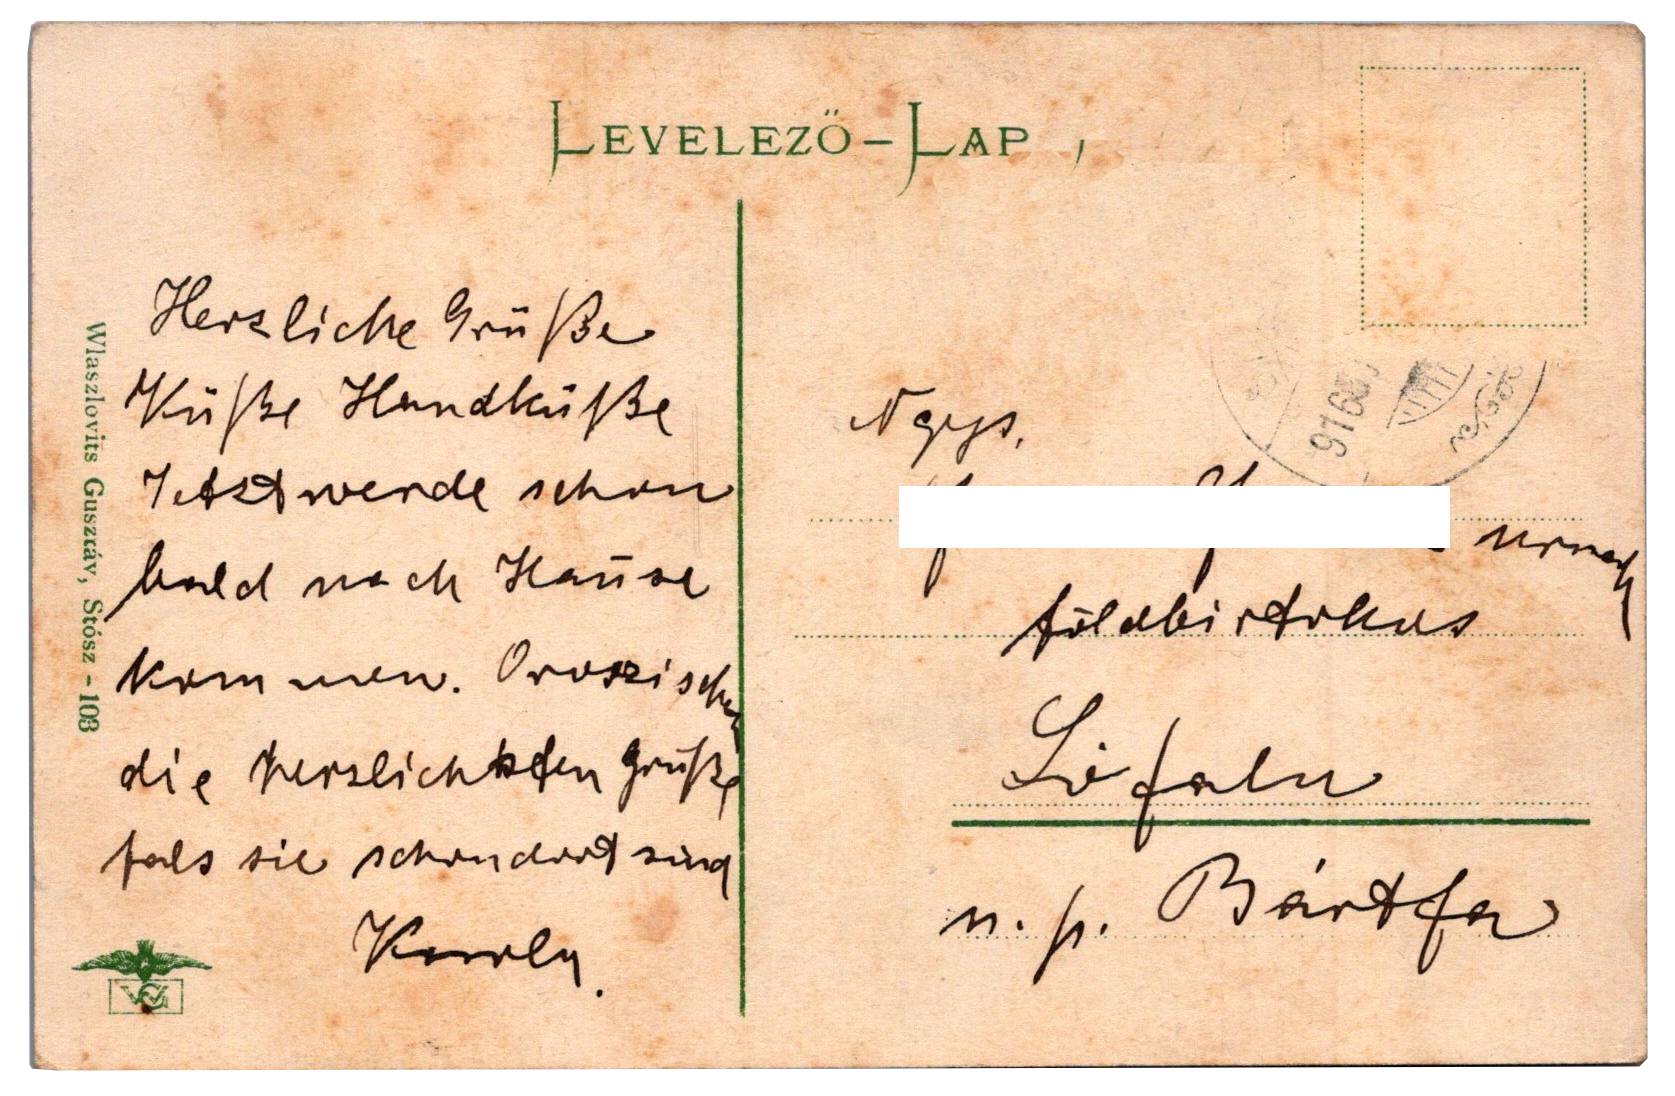 LEVELEZŐ-LAP
Herzliche Grüße
Küße Handküße
Jetzt werde schon
bald nach Hause
kommen. Oroszischen
die herzlichsten Grüße
fals sie schon dort sind
Karoly.
Wlaszlovits Gusztáv, Stósz - 103
VG
916
Ngys.
urnak
földbirtokos
Lófalu
n. p. Bártfa